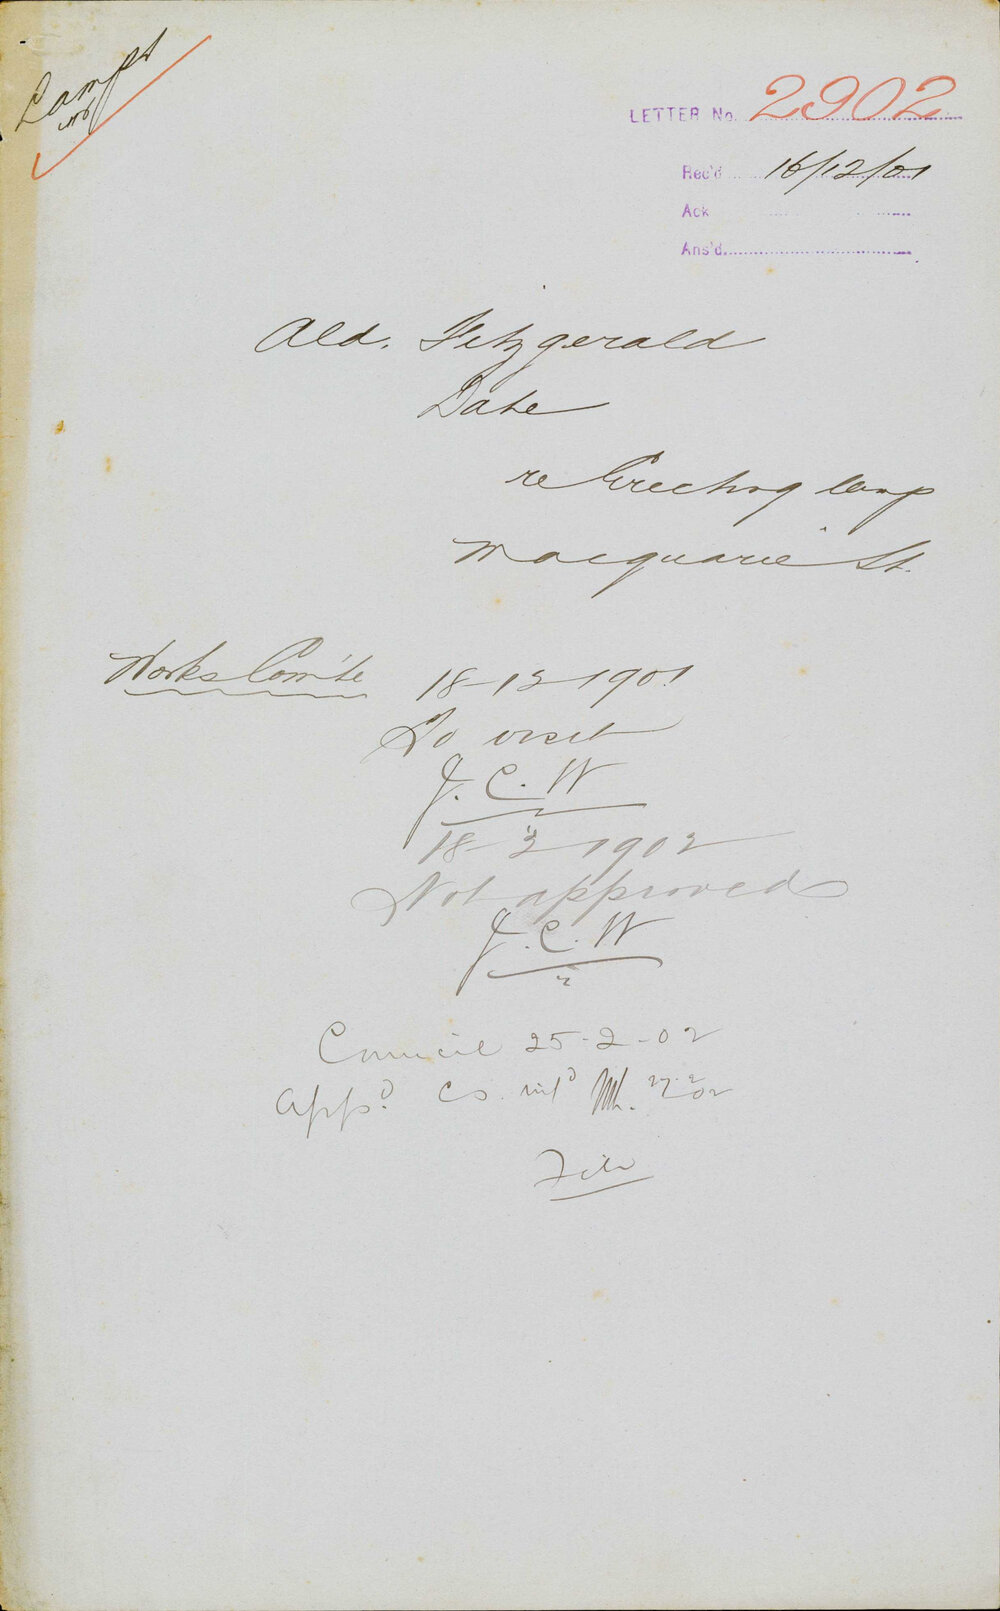 Lamps
LETTER No. 2902
Rec'd 16/12/01
Ack
Ans'd
Ald. Fitzgerald
Date
re Erecting lamp
Macquarie St.
Works Com'te 18-12-1901
To visit
J. C. W
18-2-1902
Not approved
J. C. W
Council 25-2-02
App.d 27.2.02
File